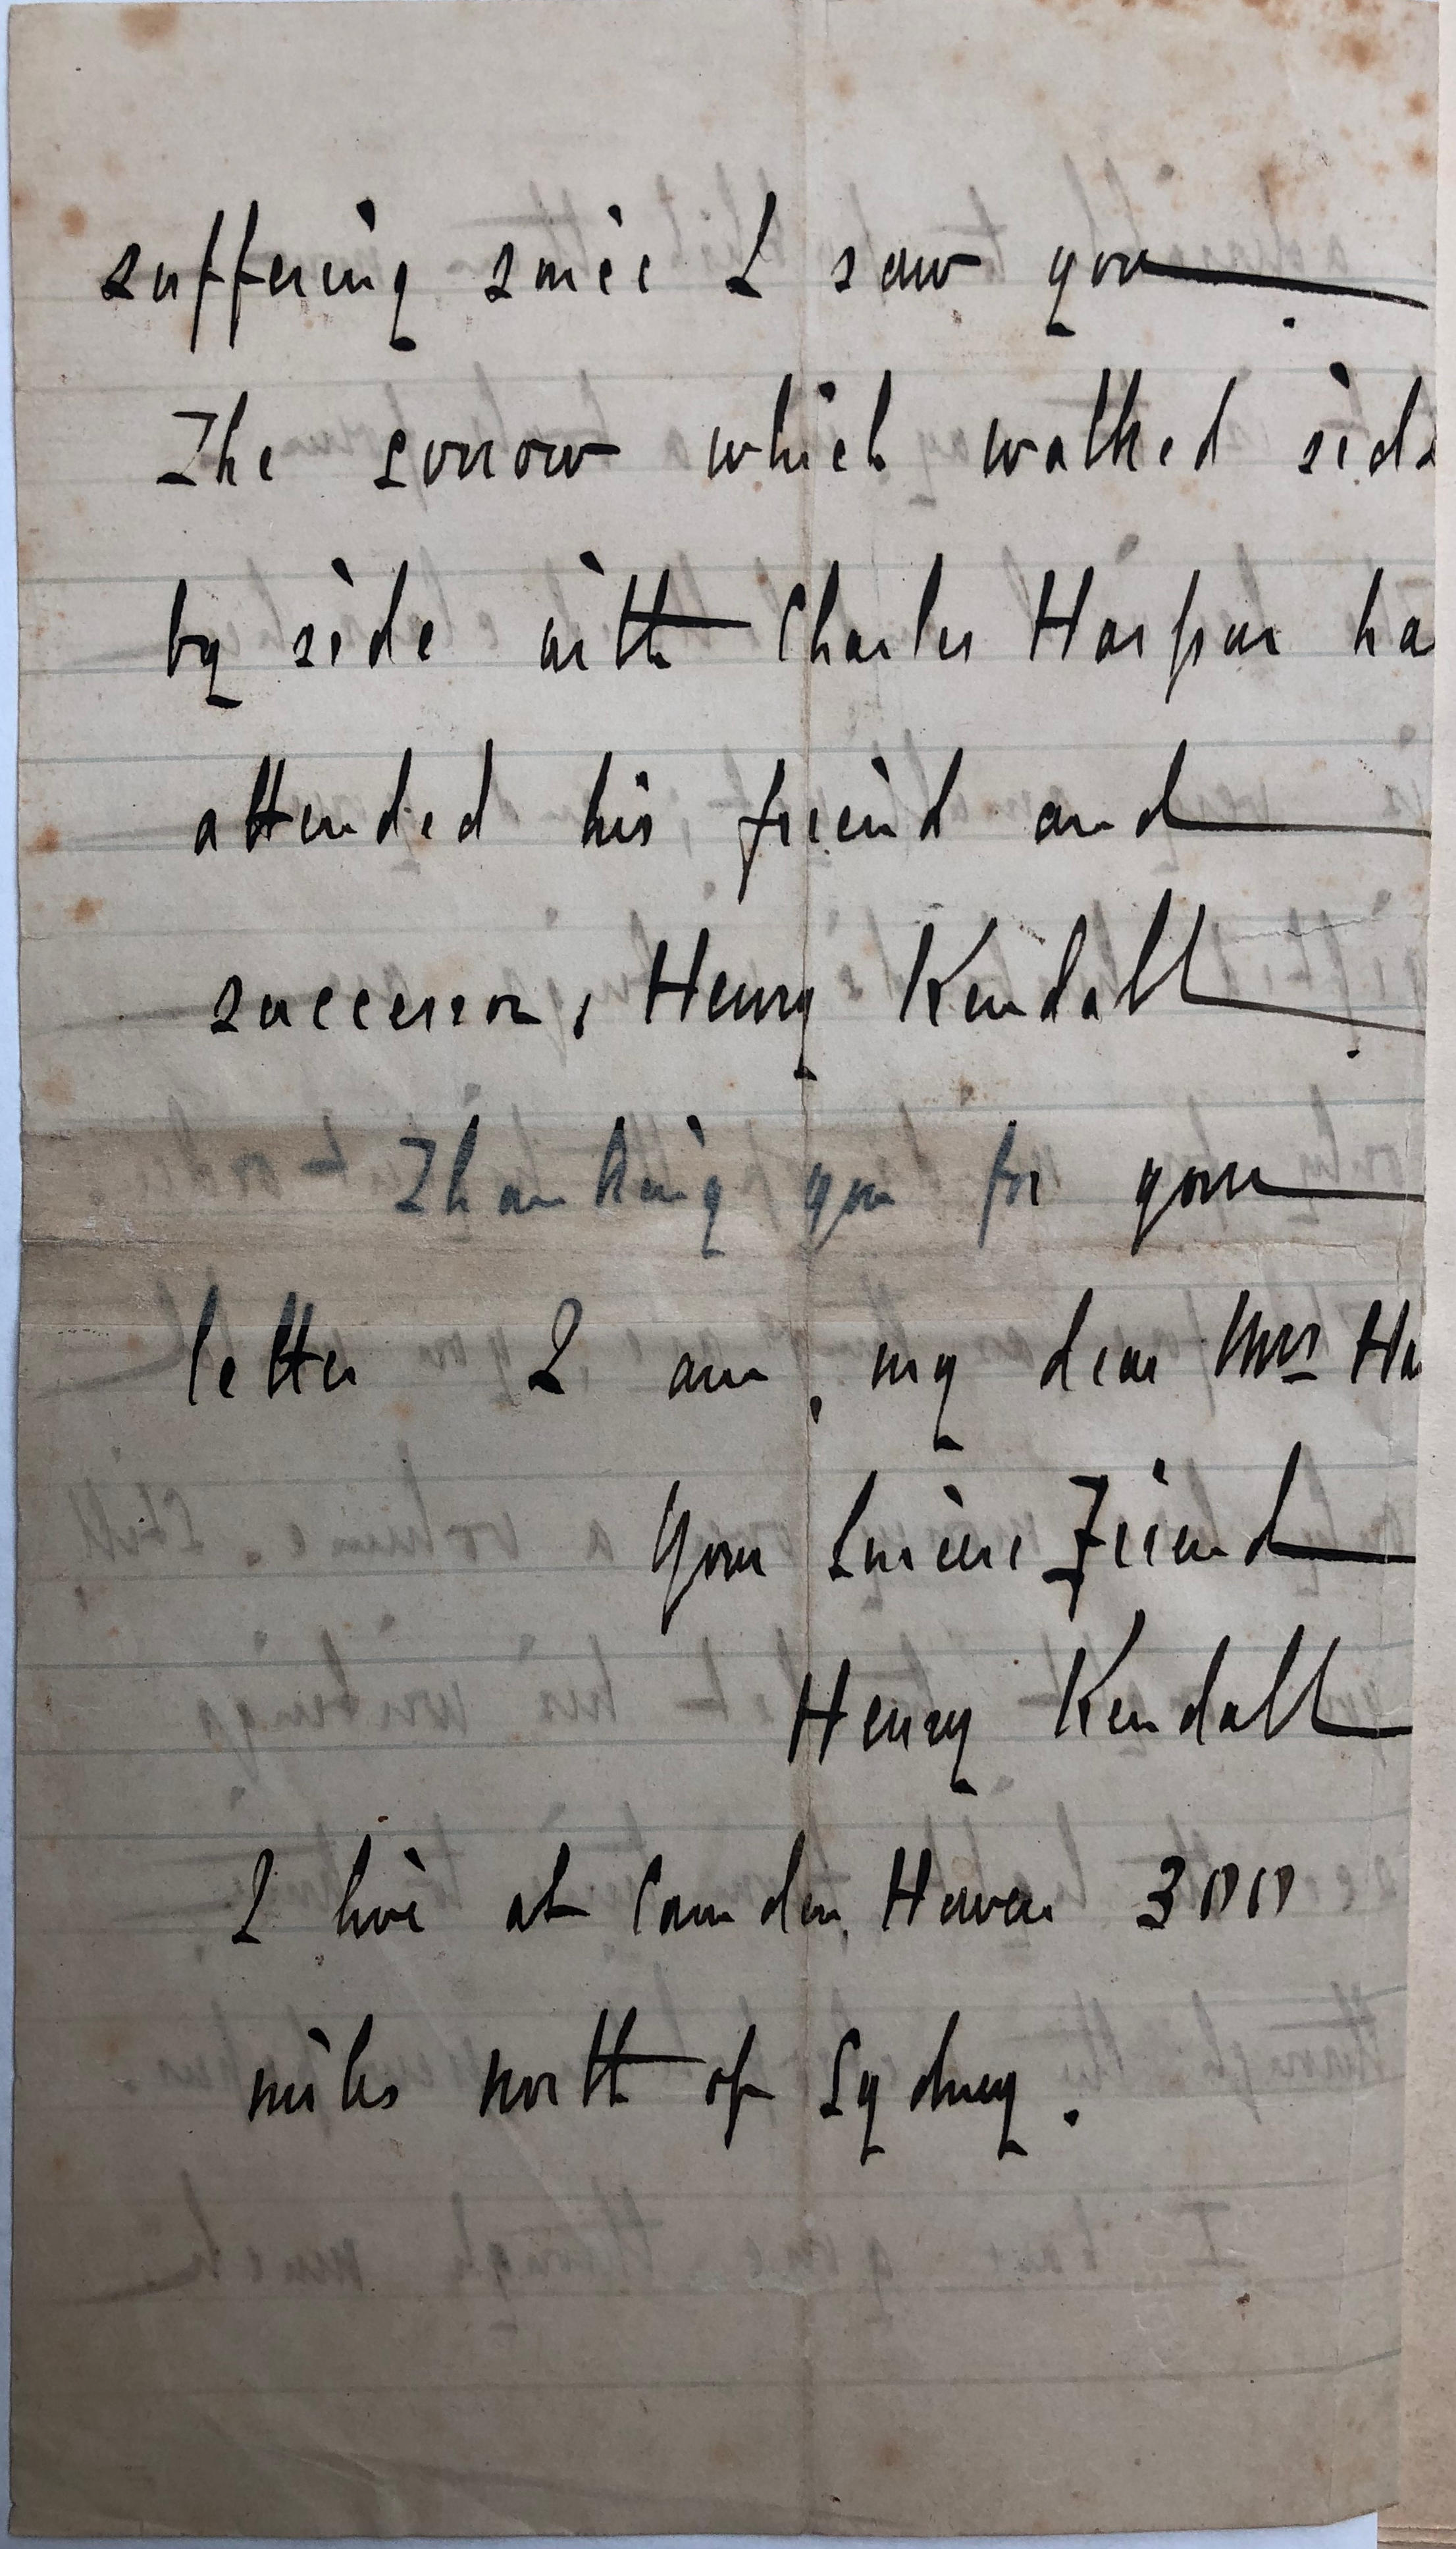 suffering since I saw you.
The sorrow which walked side
by side with Charles Harpur ha
attended his friend and
successor, Henry Kendall.
Thanking you for your
letter I am, my dear Mrs Ha
Your Sincere Friend
Henry Kendall
I live at Camden Haven 300
miles north of Sydney.